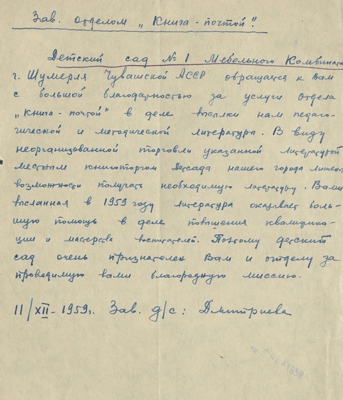 Зав. отделом „Книга-почтой".
Детский сад №1 Мебельного Комбината
г. Шумерля Чувашской АССР обращается к Вам
с большой благодарностью за услуги отдела
„Книга-почтой" в деле высылки нам педаго-
гической и методической литературы. В виду
неорганизованной торговли указанной литературой
местным книготоргом детсада нашего города лишены
возможности получать необходимую литературу. Вами
высланная в 1959 году литература оказывает боль-
шую помощь в деле повышения квалифика-
ции и мастерства воспитателей. Поэтому детский
сад очень признателен Вам и отделу за
проводимую вами благородную миссию.
11/XII-1959г. Зав. д/с: Дмитриева